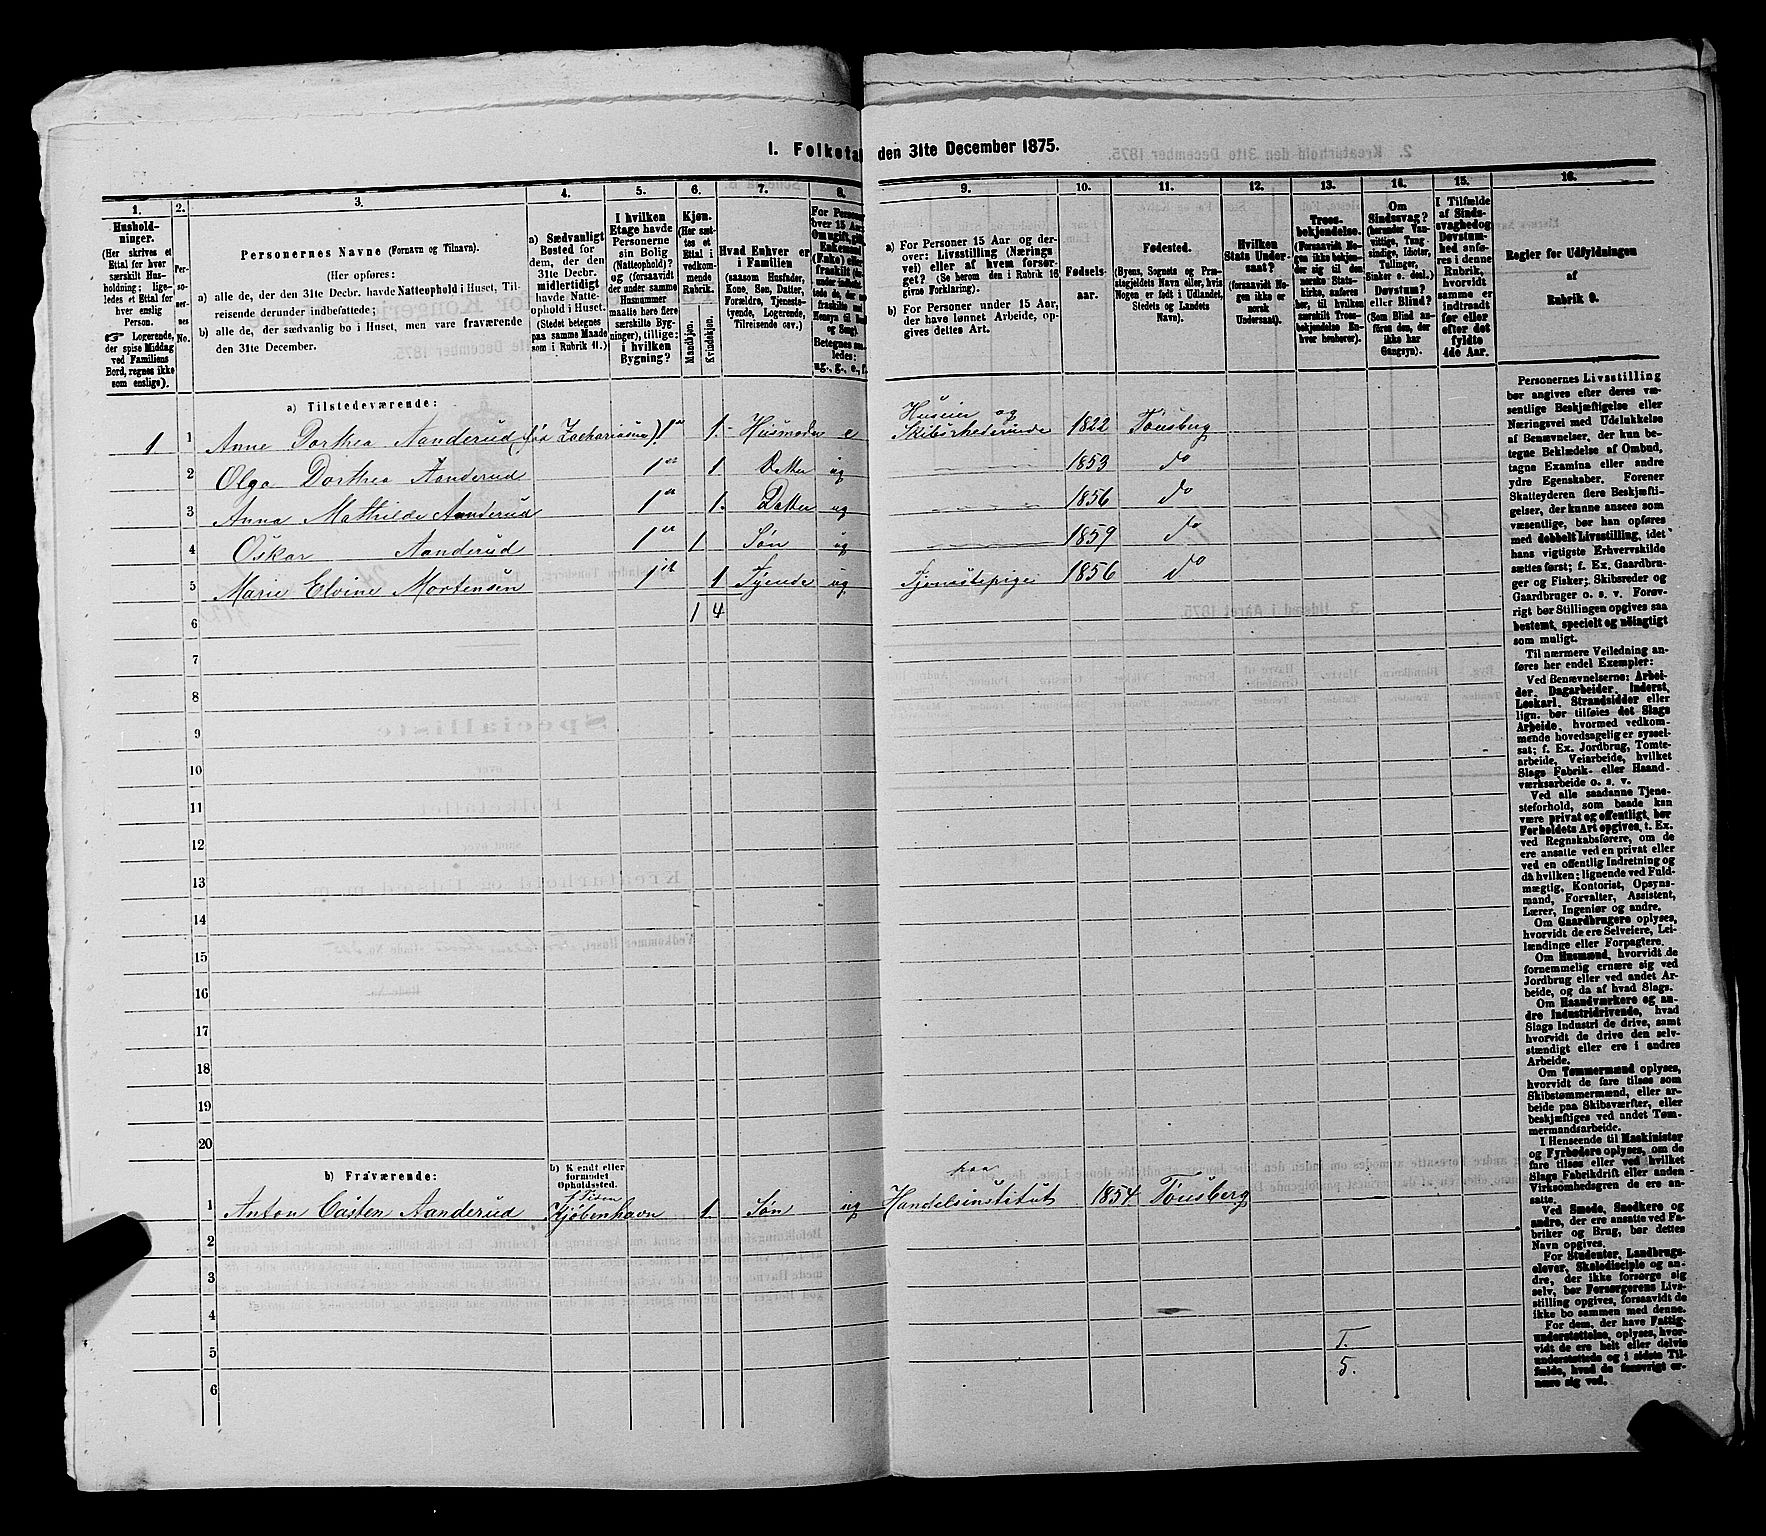 1. Folketal den 31te December 1875.
1.
Husholdninger.
(Her skrives et
Ettal for hver
særskilt Husholdning;
ligeledes
et Ettal for
hver enslig
Person.
Logerende,
der spise Middag
ved Familiens
Bord, regnes ikke
som enslige).
2.
Personernes
No.
3.
Personernes Navne (Fornavn og Tilnavn).
(Her opføres:
a) alle de, der den 31te Decbr. havde Natteophold i Huset, Tilreisende
derunder indbefattede;
b) alle de, der sædvanlig bo i Huset, men vare fraværende
den 31te December.
4.
a) Sædvanligt
Bosted for
dem, der den
31te Decbr.
midlertidigt
havde Natteophold
i Huset.
(Stedet betegnes
paa samme Maade
som i Rubrik 11.)
5.
I hvilken
Etage havde
Personerne
sin Bolig
(Natteophold)?
(forsaavidt
der under samme
Husnummer
maatte høre flere
særskilte Bygninger),
tillige:
i hvilken
Bygning?
6.
Kjøn.
(Her sættes
et
Ettal i
vedkommende
Rubrik.
Mandkjøn.
Kvindekjøn.
7.
Hvad Enhver er
i Familien
(saasom Husfader,
Kone, Søn, Datter,
Forældre, Tjenestetyende,
Logerende,
Tilreisende osv.)
8.
9.
a) For Personer 15 Aar og derover:
Livsstilling (Næringsvei)
eller af hvem forsørget?
(Se herom den i Rubrik 16
givne Forklaring).
b) For Personer under 15 Aar,
der have lønnet Arbeide, opgives
dettes Art.
10.
Fødselsaar.
11.
Fødested.
(Byens, Sognets og Præstegjeldets
Navn eller, hvis
Nogen er født i Udlandet,
Stedets og Landets
Navn).
12.
Hvilken
Stats Undersaat?
(forsaavidt Nogen
ikke er
norsk
Undersaat).
13.
Troesbekjendelse.
(Forsaavidt Nogen
ikke bekjender
sig til den
norske Statskirke,
anføres
her, til hvilken
særskilt Troesbekjendelse
Enhver
henhører).
14.
Om
Sindssvag?
(herunder Vanvittige,
Tungsindige,
Idioter,
Tullinger,
Sinker o. desl.)
Døvstum?
eller Blind?
(Som Blind anføres
den, der
ikke har
Gangsyn).
15.
I Tilfælde
af Sindssvaghed
og
Døvstumhed
anføres
i denne
Rubrik,
hvorvidt
samme er
indtraadt
før eller
efter det
fyldte
4de Aar.
16.
Regler for Udfyldningen
af
Rubrik 9.
a) Tilstedeværende:
1 1 Anne Dorthea Aanderud (fød Zachariasen) 1 1. Husmoder e Huseier og Skibsrhederinde 1822 Tønsberg
2 Olga Dorthea Aanderud 1 1. Datter ug 1853 do
3 Anna Mathilde Aanderud 1 1. Datter ug 1856 do
4 Oskar Aanderud 1 1. Søn ug 1859 do
5 Marie Elvine Mortensen 1 1 Tyende ug Tjenestepige 1856 do
6 1 4
7
8
9
10
11
12
13
14
15
16
17
18
19
20
b) Fraværende:
b) Kendt eller
formodet
Opholdssted.
1 Anton Casten Aanderud Kjøbenhavn 1. Søn ug paa Handelsinstitut 1854. Tønsberg
2
3
4
5
6
T.
5.
Personernes Livsstilling
bør angives efter deres væsentlige
Beskjæftigelse eller
Næringsvei med Udelukkelse
af Benævnelser, der kun betegne
Beklædelse af Ombud,
tagne Examina eller andre
ydre Egenskaber. Forener
Skatteyderen flere Beskjæftigelser,
der kunne ansees som
væsentlige, bør han opføres
med dobbelt Livsstilling, idet
hans vigtigste Erhvervskilde
sættes først; f. Ex. Gaardbruger
og Fisker; Skibsreder og
Gaardbruger o. s. v. Forøvrigt
bør Stillingen opgives saa
bestemt, specielt og nøiagtigt
som muligt.
Til nærmere Veiledning anføres
her endel Exempler:
Ved Benævnelserne: Arbeider,
Dagarbeider, Inderst,
Løskarl, Strandsidder eller
lign. bør tilføies det Slags
Arbeide, hvormed vedkommende
hovedsagelig er sysselsat;
f. Ex. Jordbrug, Tomtearbeide,
Veiarbeide, hvilket
Slags Fabrik- eller Haandværksarbeide
o. s. v.
Ved alle saadanne Tjenesteforhold,
som baade kan
være privat og offentligt, bør
Forholdets Art opgives, t. Ex.
ved Regnskabsførere, om de
ere ansatte ved en privat eller
ved en offentlig Indretning og
da hvilken; lignende ved Fuldmægtig,
Kontorist, Opsynsmand,
Forvalter, Assistent,
Lærer, Ingeniør og andre.
Om Gaardbrugere oplyses,
hvorvidt de ere Selveiere, Leilændinge
eller Forpagtere.
Om Husmænd, hvorvidt de
fornemmelig ernære sig ved
Jordbrug eller ved andet Arbeide,
og da af hvad Slags.
Om Haandværkere og andre
Industridrivende, hvad
Slags Industri de drive, samt
hvorvidt de drive den selvstændigt
eller ere i andres
Arbeide.
Om Tømmermænd oplyses,
hvorvidt de fare tilsøs som
Skibstømmermænd, eller arbeide
paa Skibsværfter, eller
beskjæftiges ved andet Tømmermandsarbeide.
I Henseende til Maskinister
og Fyrbødere oplyses, om de
fare tilsøs eller ved hvilket
Slags Fabrikdrift eller anden
Virksomhedsgren de ere ansatte.
Ved Smede, Snedkere og
andre, der ere ansatte ved Fabriker
og Brug, bør dettes
Navn opgives.
For Studenter, Landbrugselever,
Skoledisciple og andre,
der ikke forsørge sig
selv, bør Forsørgerens Livsstilling
opgives, forsaavidt de
ikke bo sammen med denne.
For dem, der have Fattigunderstøttelse,
oplyses, hvorvidt
de ere helt eller delvis
understøttede og i sidste Tilfælde,
hvad de forøvrigt ernære
sig ved.